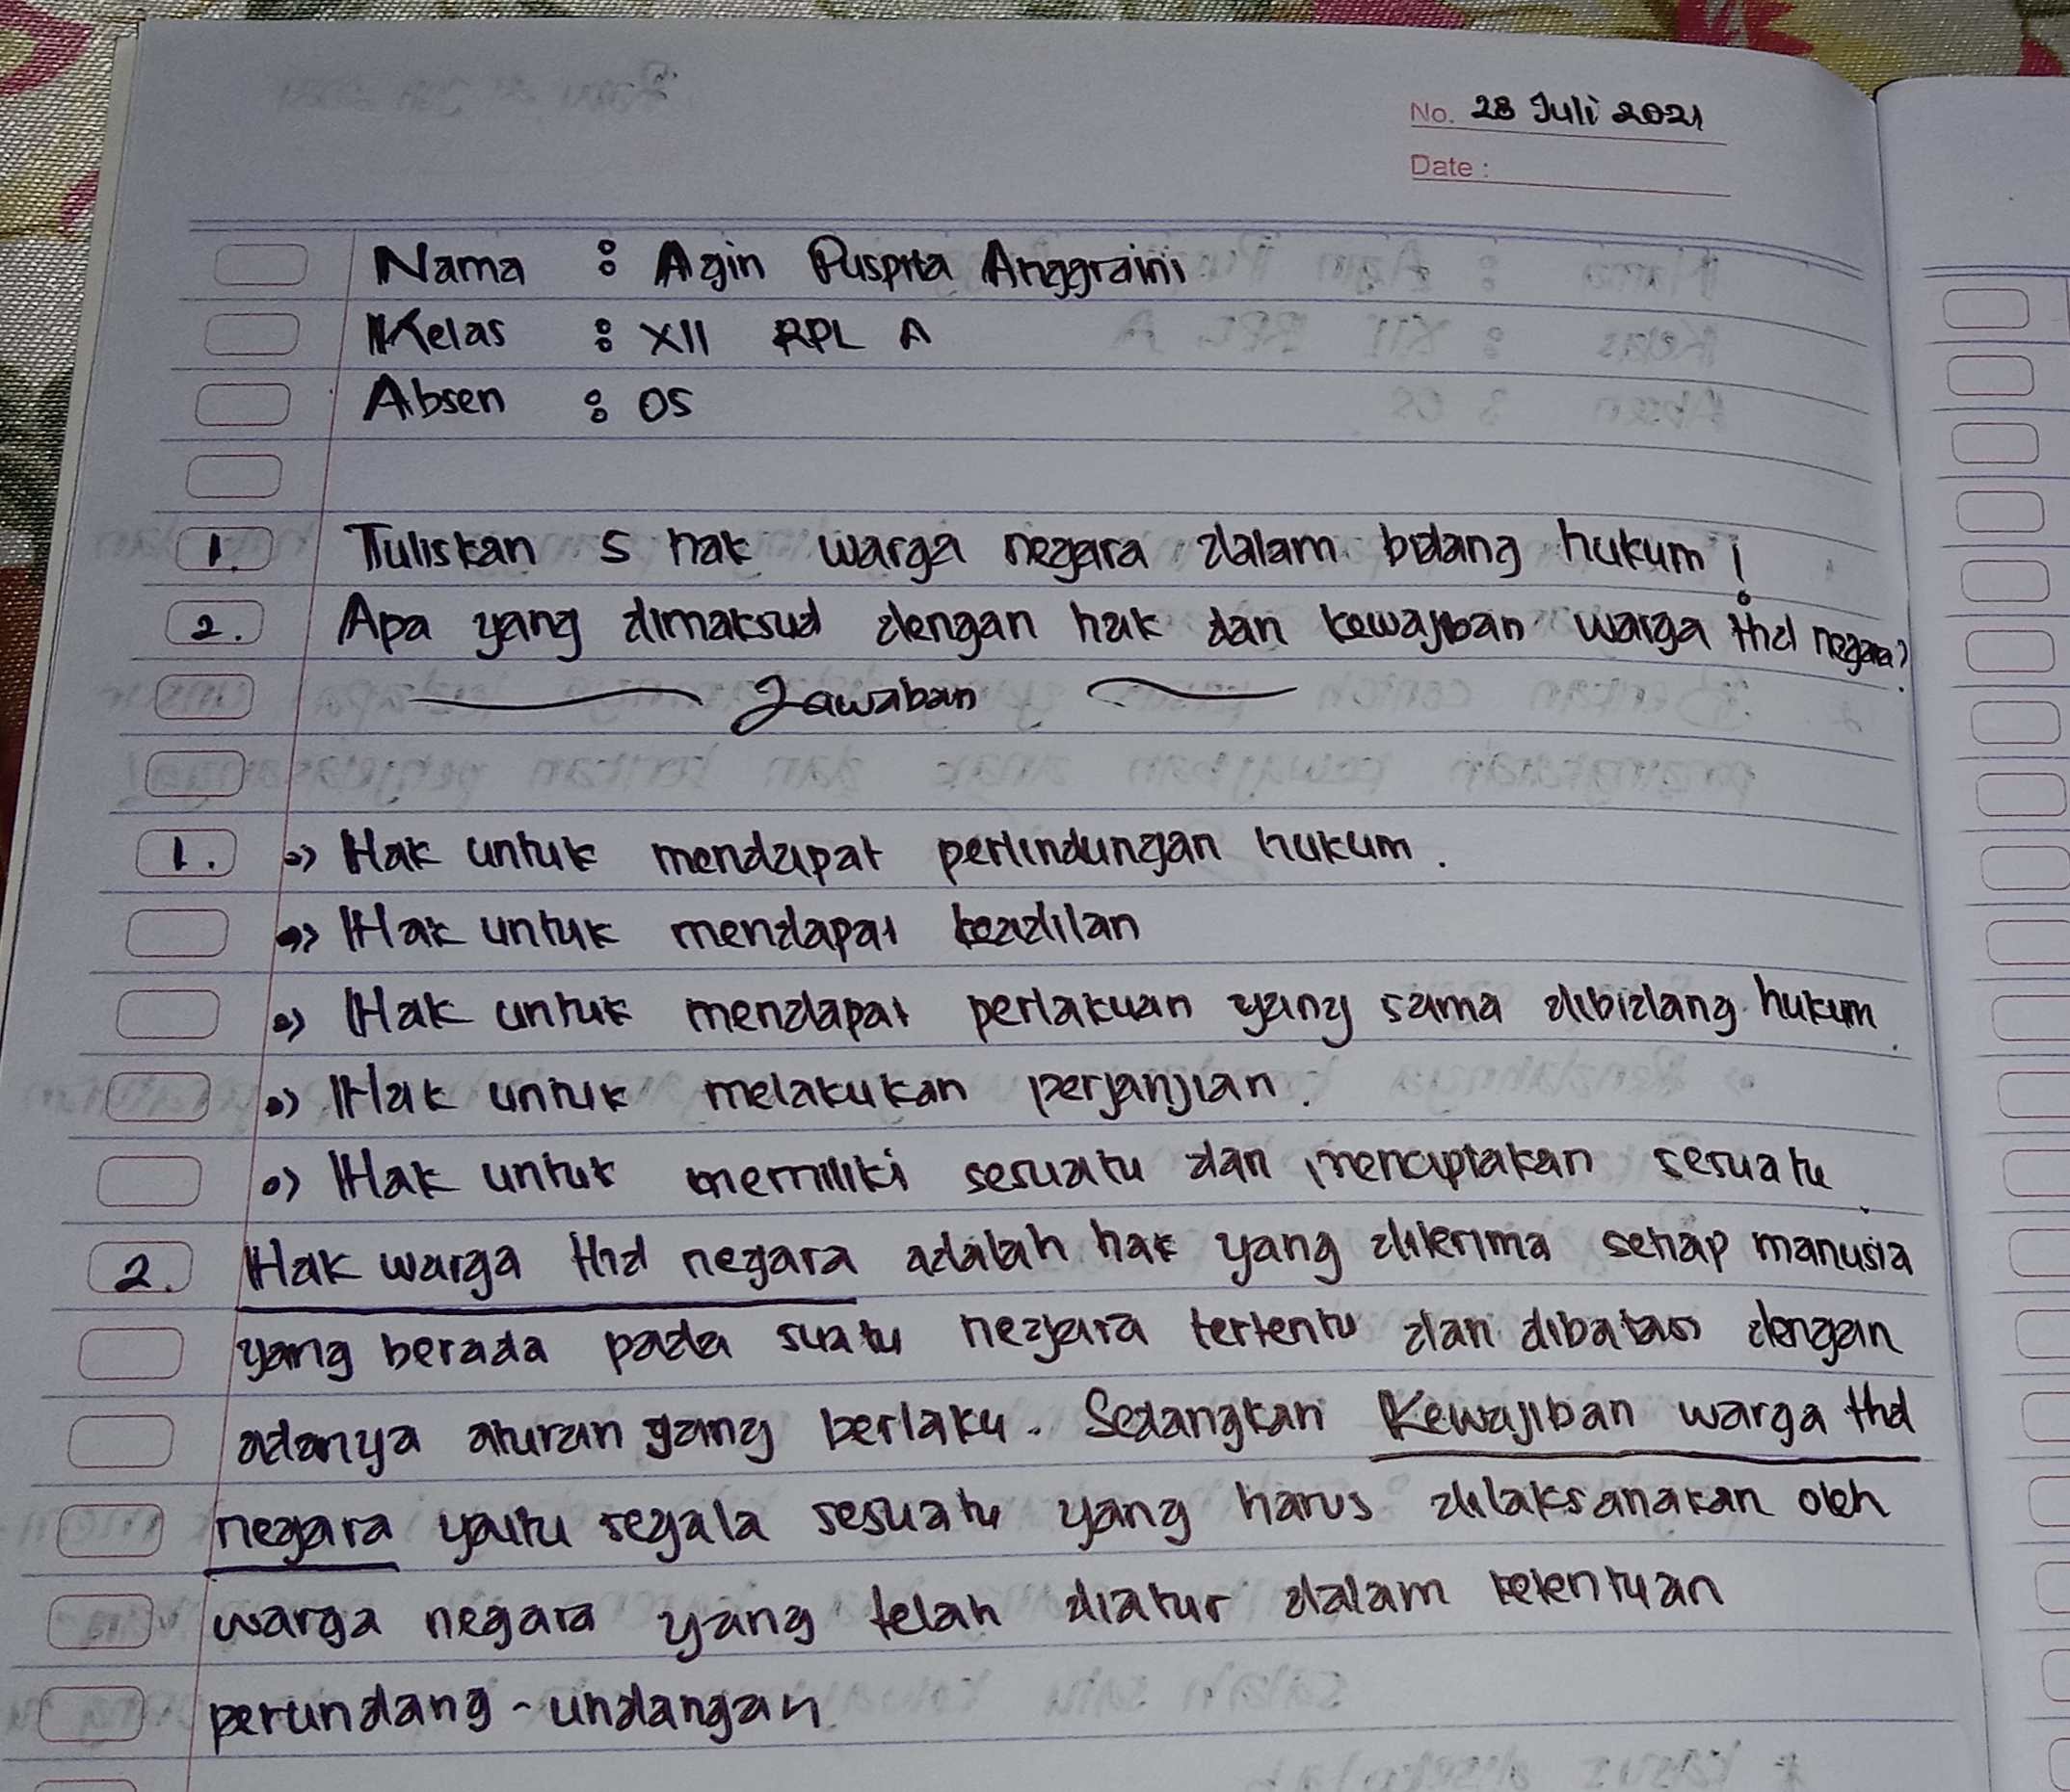 No. 28 Juli 2021
Date :
Nama : Agin Puspita Anggraini
Kelas : XII RPL A
Absen : 05
1. Tuliskan 5 hak warga negara dalam bidang hukum !
2. Apa yang dimaksud dengan hak dan kewajiban warga thd negara?
Jawaban
1. •> Hak untuk mendapat perlindungan hukum.
•> Hak untuk mendapat keadilan
•> Hak untuk mendapat perlakuan yang sama dibidang hukum.
•> Hak untuk melakukan perjanjian.
•> Hak untuk memiliki sesuatu dan menciptakan sesuatu.
2. Hak warga thd negara adalah hak yang diterima setiap manusia
yang berada pada suatu negara tertentu dan dibatasi dengan
adanya aturan yang berlaku. Sedangkan Kewajiban warga thd
negara yaitu segala sesuatu yang harus dilaksanakan oleh
warga negara yang telah diatur dalam ketentuan
perundang-undangan